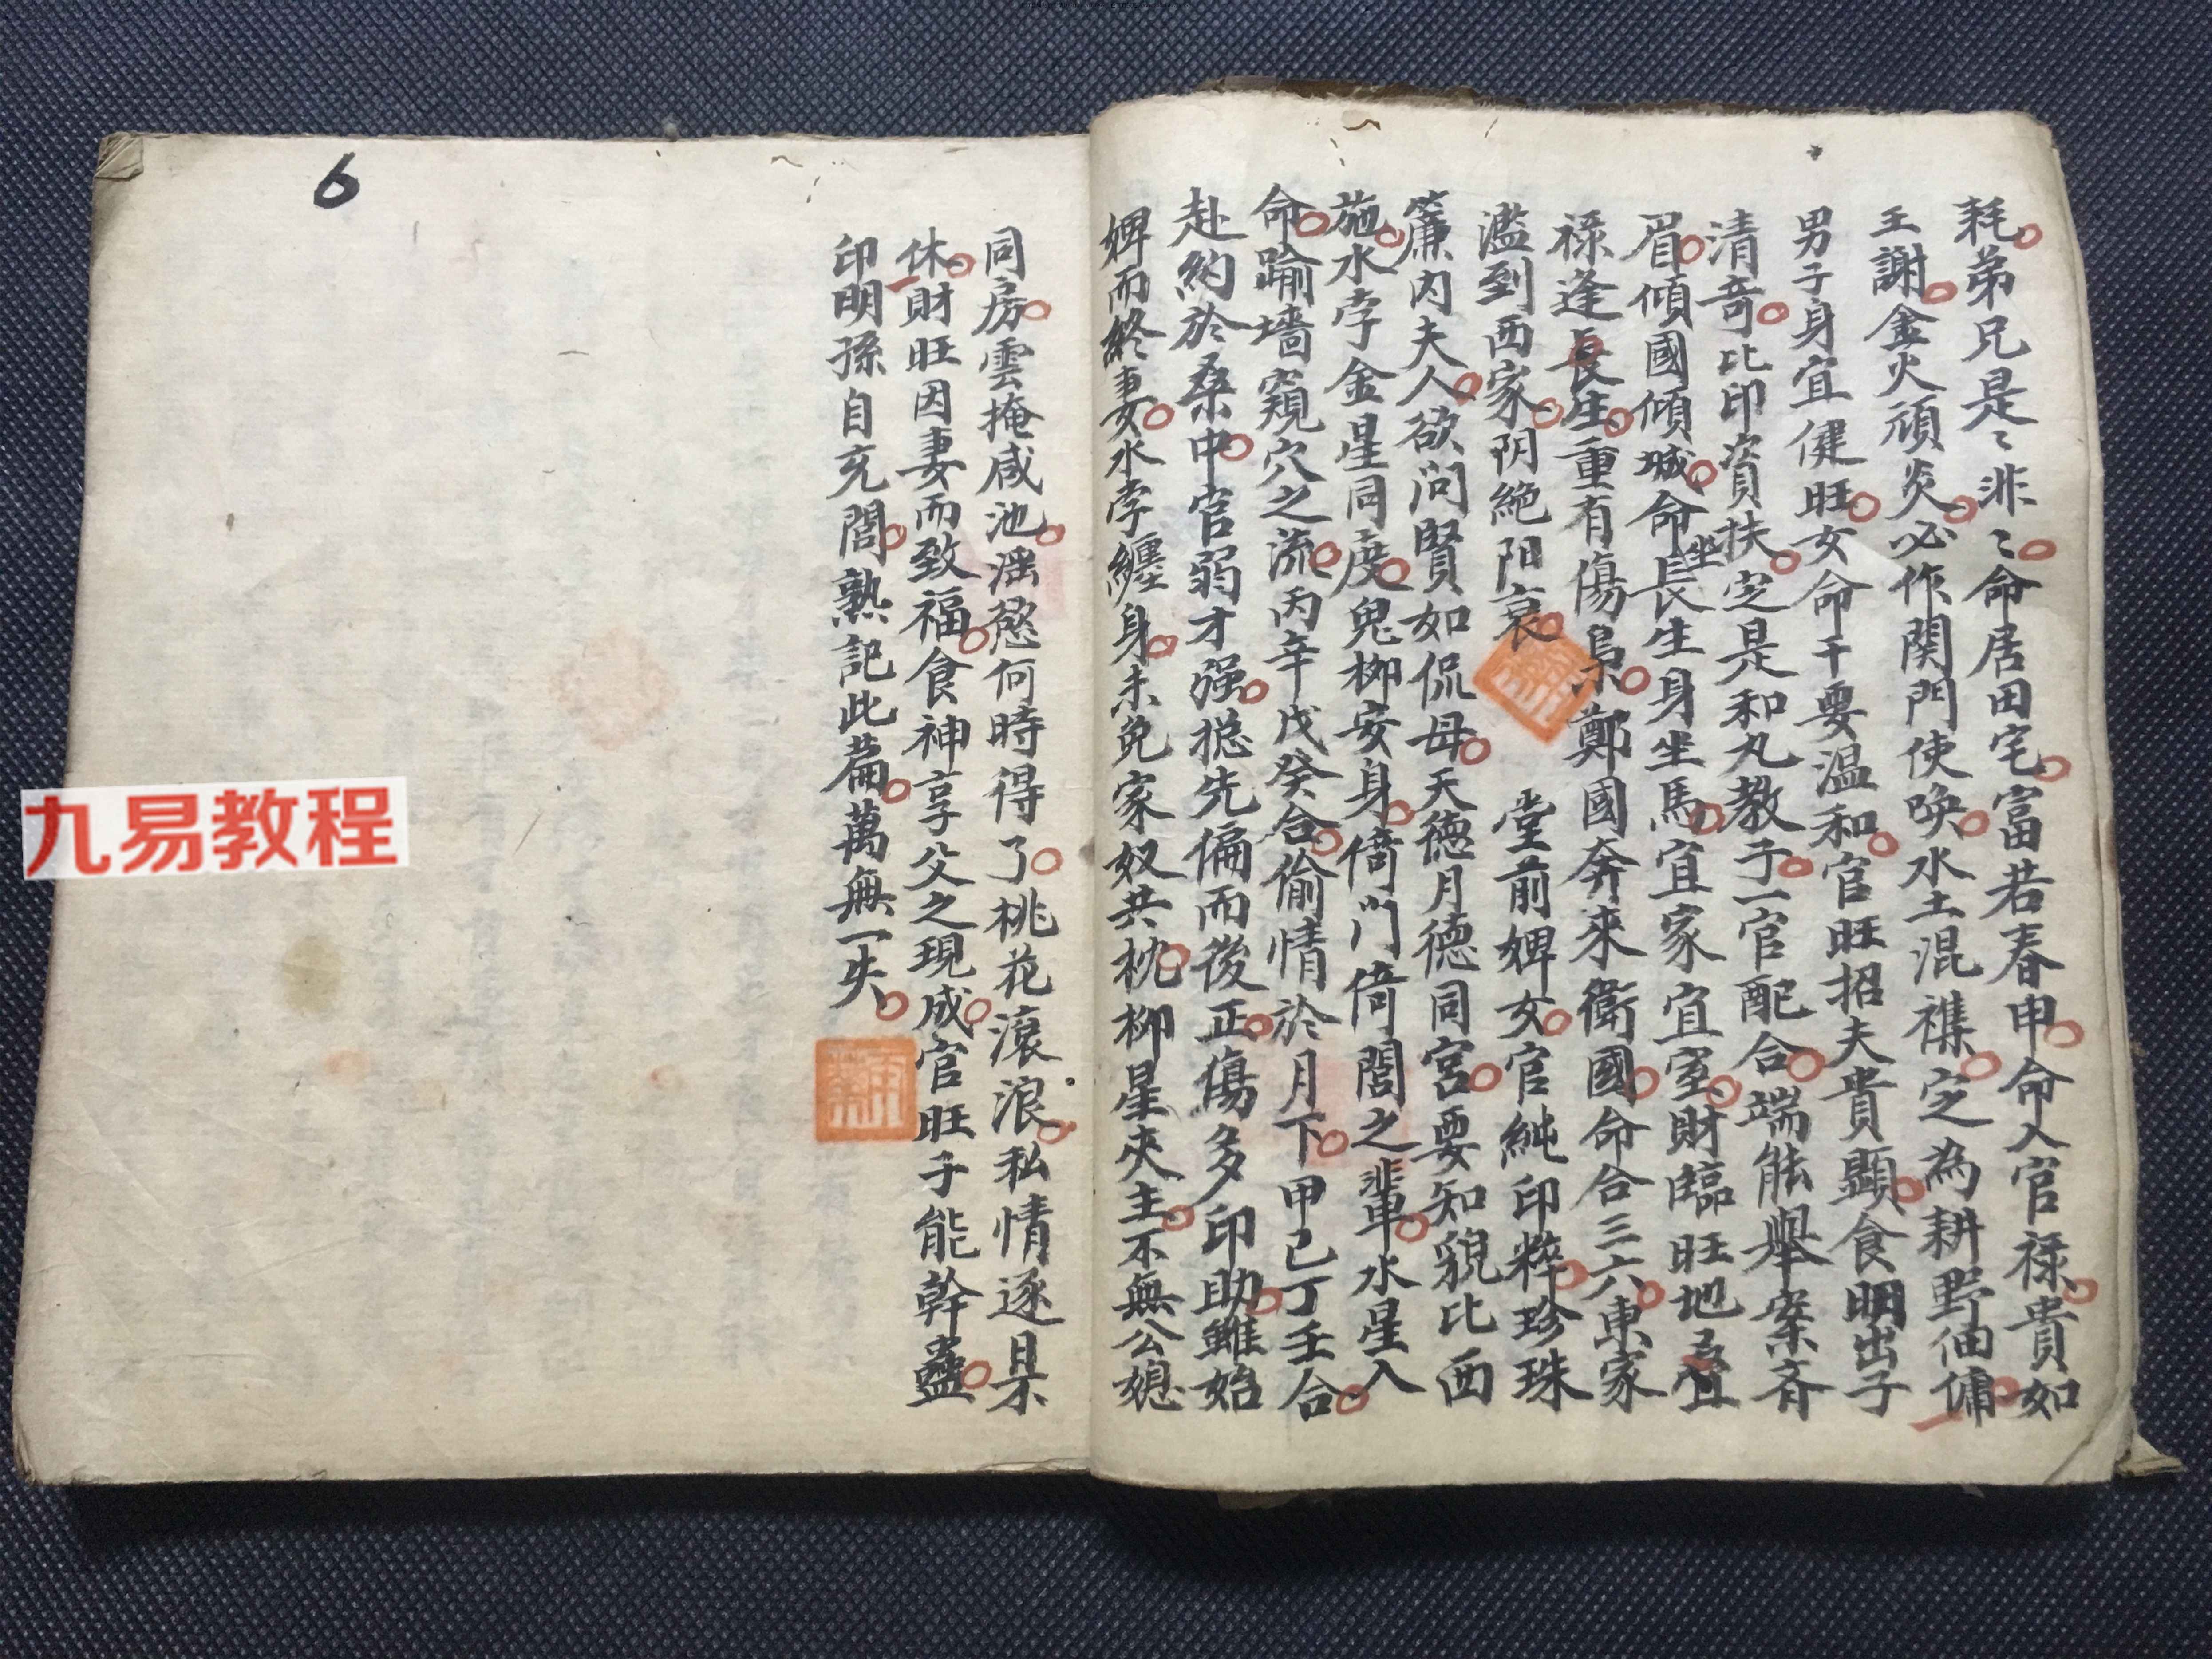 耗弟兄是〻非〻命居田宅富若春申命入官祿貴如
王謝金火頑炎必作関門使喚水土混襍定為耕野佃傭
男子身宜健旺女命干要温和官旺招夫貴顯食明出子
清奇比印資扶定是和丸教子一官配合端能舉案齐
眉傾國傾城命坐長生身坐馬宜家宜室財臨旺地疊
祿逢長生重有傷梟鄭國奔來衛國命合三六東家
濫到西家阴絶阳衰 堂前婢女官純印粹珍珠
簾内夫人欲问賢如侃母天德月德同宮要知貌比西
施水孛金星同度鬼柳安身倚门倚閭之輩水星入
命踰墻窺穴之流丙辛戊癸合偷情於月下甲己丁壬合
赴約於桑中官弱才强摠先偏而後正傷多印助雖始
婢而終妻水孛纏身未免家奴共枕柳星夾主不無公媳
同房雲掩咸池滛慾何時得了桃花滾浪私情逐日不
休財旺因妻而致福食神享父之現成官旺子能幹蠱
印明孫自充閭熟記此篇萬無一失
6
九易教程